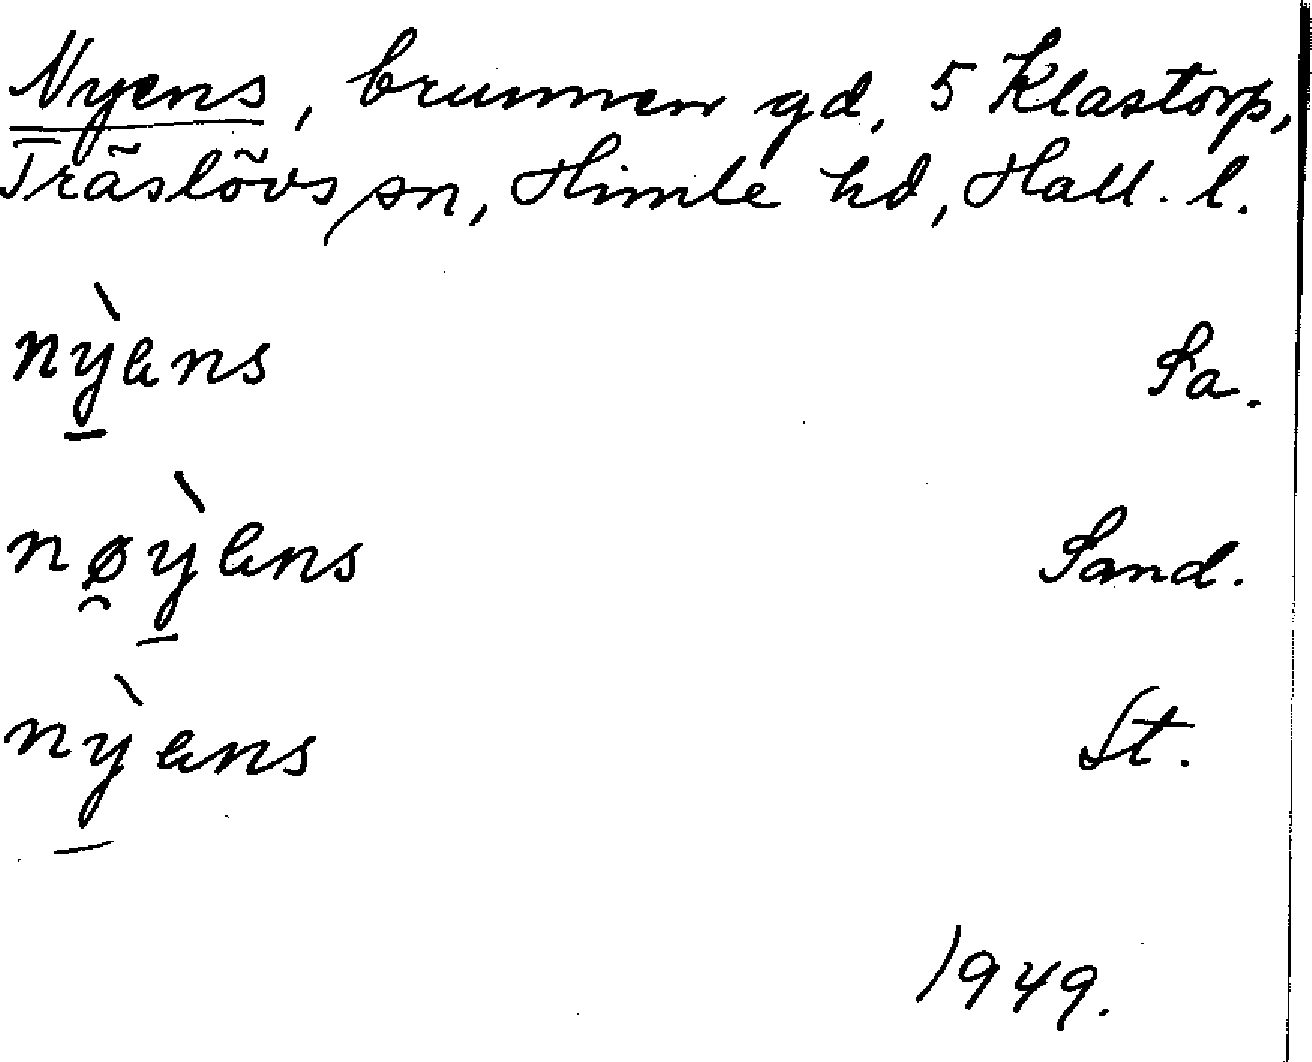 Nyens, brunnen gd, 5 Klastorp,
Träslövs sn, Himle hd, Hall. l.
nỳens Sa.
nøỳens Sand.
nỳens St.
1949.